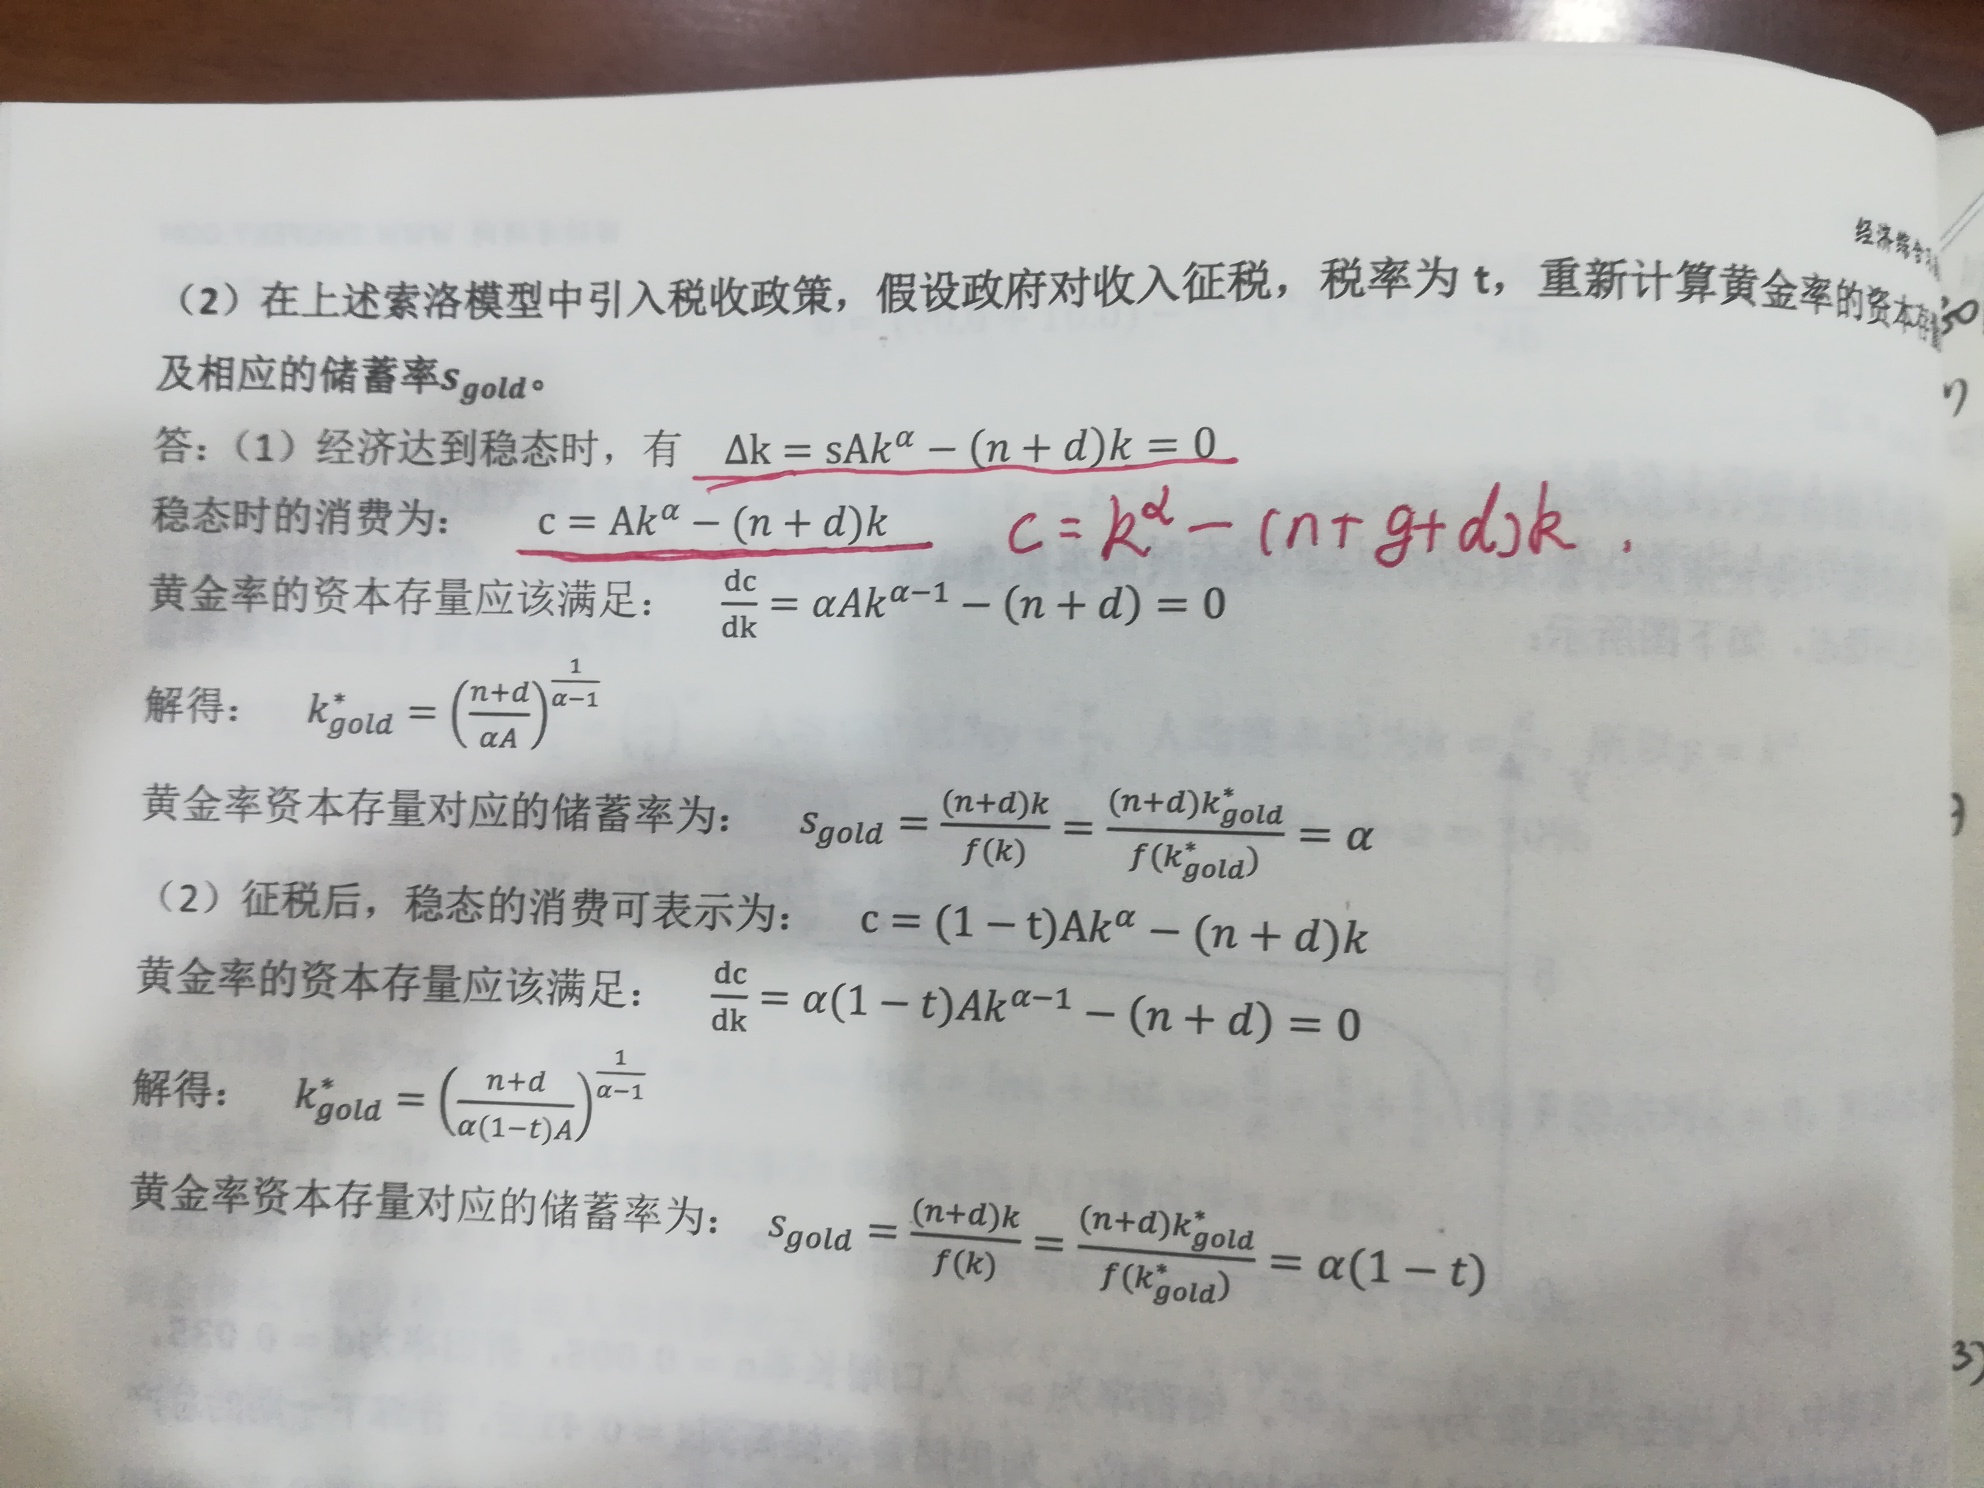 经济综合
（2）在上述索洛模型中引入税收政策，假设政府对收入征税，税率为 t，重新计算黄金率的资本存量
及相应的储蓄率s_gold。
答：（1）经济达到稳态时，有 Δk = sAk^α − (n + d)k = 0
稳态时的消费为： c = Ak^α − (n + d)k c = k^α − (n+g+d)k .
黄金率的资本存量应该满足： dc/dk = αAk^(α−1) − (n + d) = 0
解得： k*_gold = ((n+d)/(αA))^(1/(α−1))
黄金率资本存量对应的储蓄率为： s_gold = (n+d)k/f(k) = (n+d)k*_gold/f(k*_gold) = α
（2）征税后，稳态的消费可表示为： c = (1 − t)Ak^α − (n + d)k
黄金率的资本存量应该满足： dc/dk = α(1 − t)Ak^(α−1) − (n + d) = 0
解得： k*_gold = ((n+d)/(α(1−t)A))^(1/(α−1))
黄金率资本存量对应的储蓄率为： s_gold = (n+d)k/f(k) = (n+d)k*_gold/f(k*_gold) = α(1 − t)